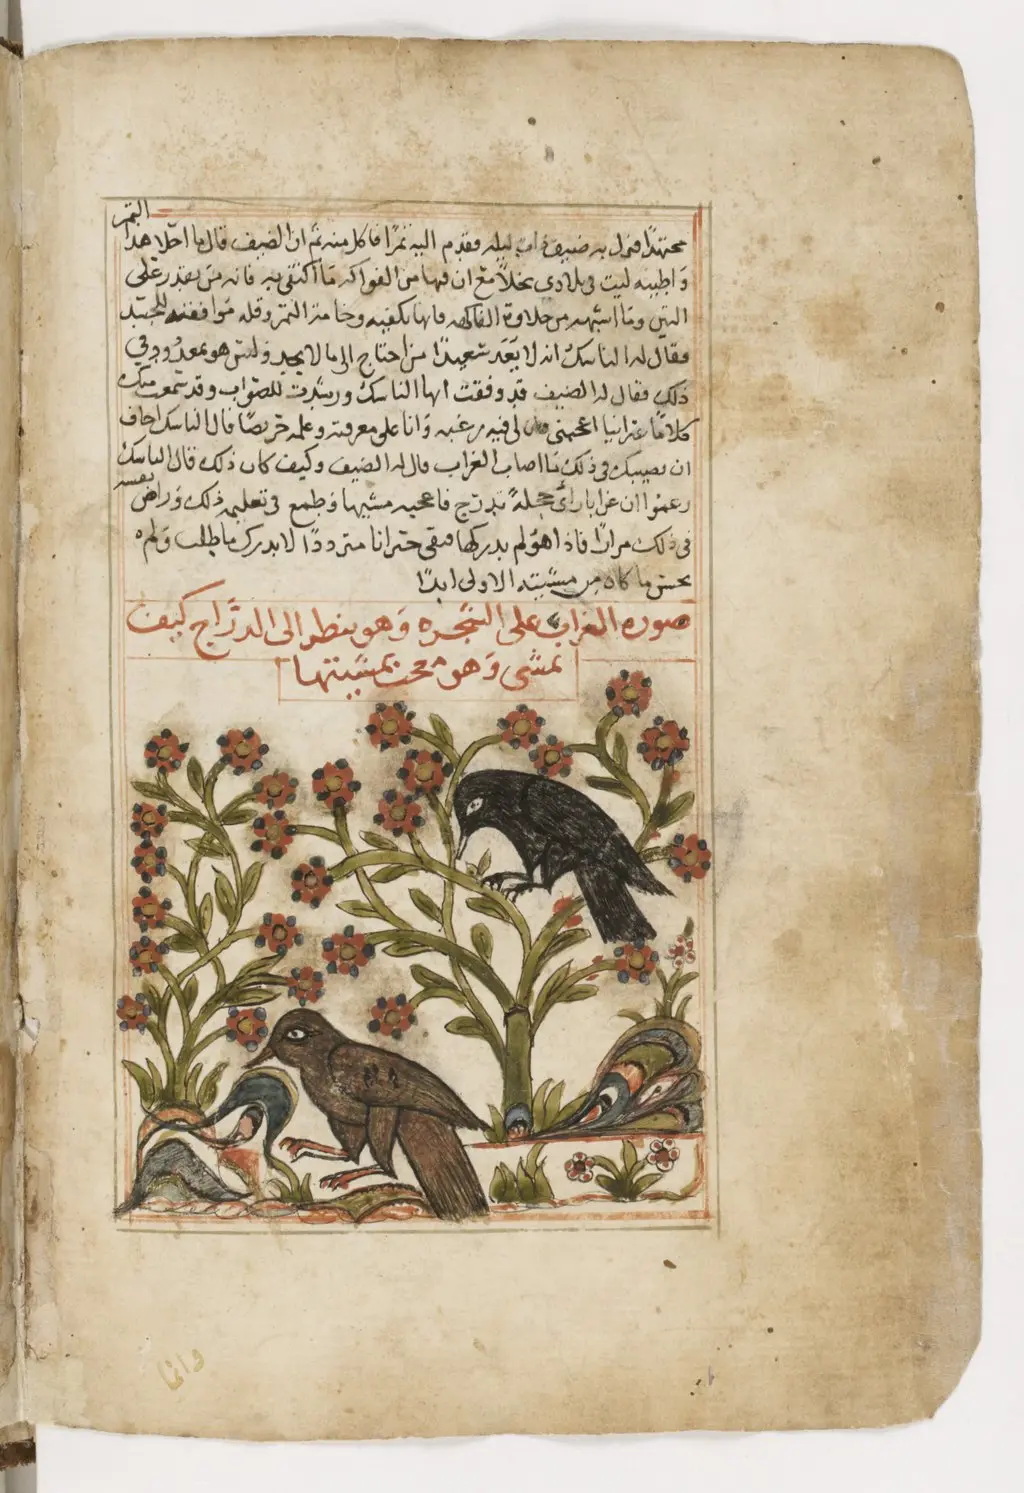 التمر
مجتهدًا فنزل به ضيف ذات ليله فقدم اليه تمرًا فاكل منه ثم ان الضيف قال ما احلا هذا
وَاطيبه ليت فى بلادي نخلاً مع ان فيها من الفواكه مَا اكتفى به فانه من يقدر على
التين ومَا اشبهه من حلاوة الفاكهه فانها تكفيه وخامة التمر وقله مَوافقته للجسَد
فقال له الناسك انه لا يَعَد سَعيدًا من احتاج الى ما لا يجد وليس هو بمعدُود فى
ذلك فقال له الضيف قد وفقت ايها الناسك ورشدت للصوَاب وقد سَمعت منك
كلامًا عبرانيا اعجبنى ولى فيه رغبه وَانا على معرفته وعلمه حريصًا قال الناسك اخاف
ان يصيبك فى ذلك مَا اصاب الغراب قال له الضيف وكيف كان ذلك قال الناسك
زعموا ان غرابا رأى حجلةً تدرج فاعجبه مشيها وَطمع فى تعليمه ذلك وَراض نفسه
فى ذلك مرارًا فاذا هُو لم يدركها فبقى حيرانا مترددًا لا يدرك ما طلب وَلم
يحسن ما كان من مشيته الاولى ابدًا
صوره الغراب على الشجره وَهو ينظر الى الدرَّاج كيف
تمشى وَهو تمشيتها
وانما